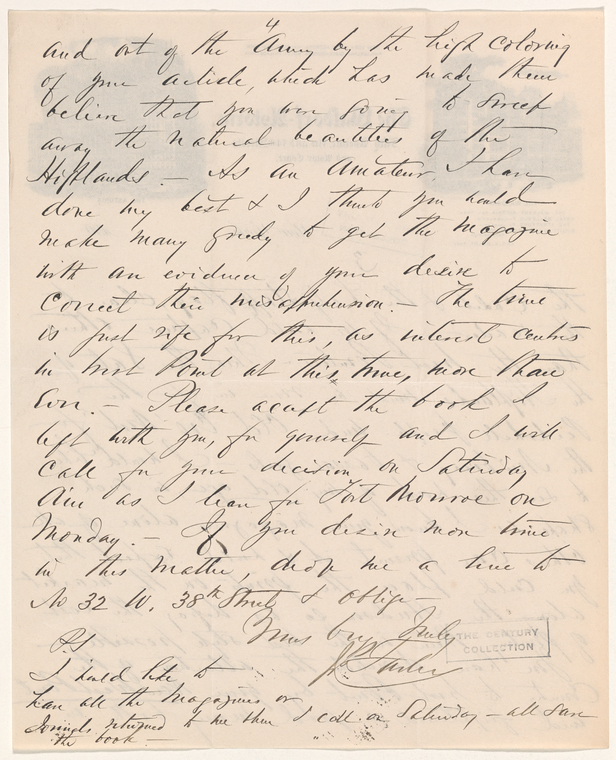 4
and out of the Army by the high coloring
of your article, which has made them
believe that you were going to sweep
away the natural beauties of the
Highlands. — As an Amateur, I have
done my best & I think you would
make many greedy to get the Magazine
with an evidence of your desire to
correct their misapprehension. — The time
is just ripe for this, as interest centres
in West Point at this time, more than
ever. — Please accept the book I
left with you, for yourself and I will
call for your decision on Saturday
AM as I leave for Fort Monroe on
Monday. — If you desire more time
in this matter, drop me a line to
No 32 W. 38th Street & oblige —
Yours very Truly
THE CENTURY
COLLECTION
P.S
I would like to
have all the Magazines or
Journals returned to me when I call on Saturday — all save
"the book —